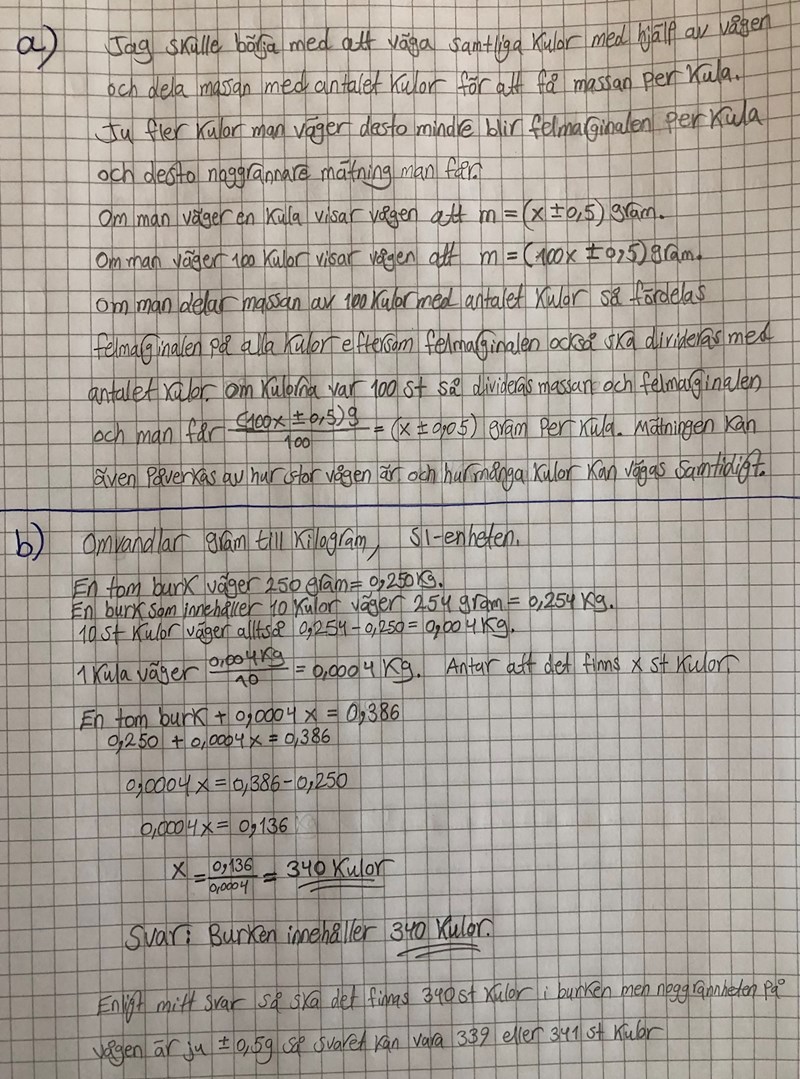 a) Jag skulle börja med att väga samtliga kulor med hjälp av vågen
och dela massan med antalet kulor för att få massan per kula.
Ju fler kulor man väger desto mindre blir felmarginalen per kula
och desto noggrannare mätning man får.
Om man väger en kula visar vågen att m = (x ± 0,5) gram.
Om man väger 100 kulor visar vågen att m = (100x ± 0,5) gram.
om man delar massan av 100 kulor med antalet kulor så fördelas
felmarginalen på alla kulor eftersom felmarginalen också ska divideras med
antalet kulor. om kulorna var 100 st så divideras massan och felmarginalen
och man får (100x ± 0,5)g / 100 = (x ± 0,05) gram per kula. Mätningen kan
även påverkas av hur stor vågen är och hur många kulor kan vägas samtidigt.
b) Omvandlar gram till kilogram, SI-enheten.
En tom burk väger 250 gram = 0,250 kg.
En burk som innehåller 10 kulor väger 254 gram = 0,254 kg.
10 st kulor väger alltså 0,254 - 0,250 = 0,004 kg.
1 kula väger 0,004 kg / 10 = 0,0004 kg. Antar att det finns x st kulor.
En tom burk + 0,0004 x = 0,386
0,250 + 0,0004x = 0,386
0,0004x = 0,386 - 0,250
0,0004x = 0,136
x = 0,136 / 0,0004 = 340 kulor
Svar: Burken innehåller 340 kulor.
Enligt mitt svar så ska det finnas 340 st kulor i burken men noggrannheten på
vågen är ju ± 0,5g så svaret kan vara 339 eller 341 st kulor